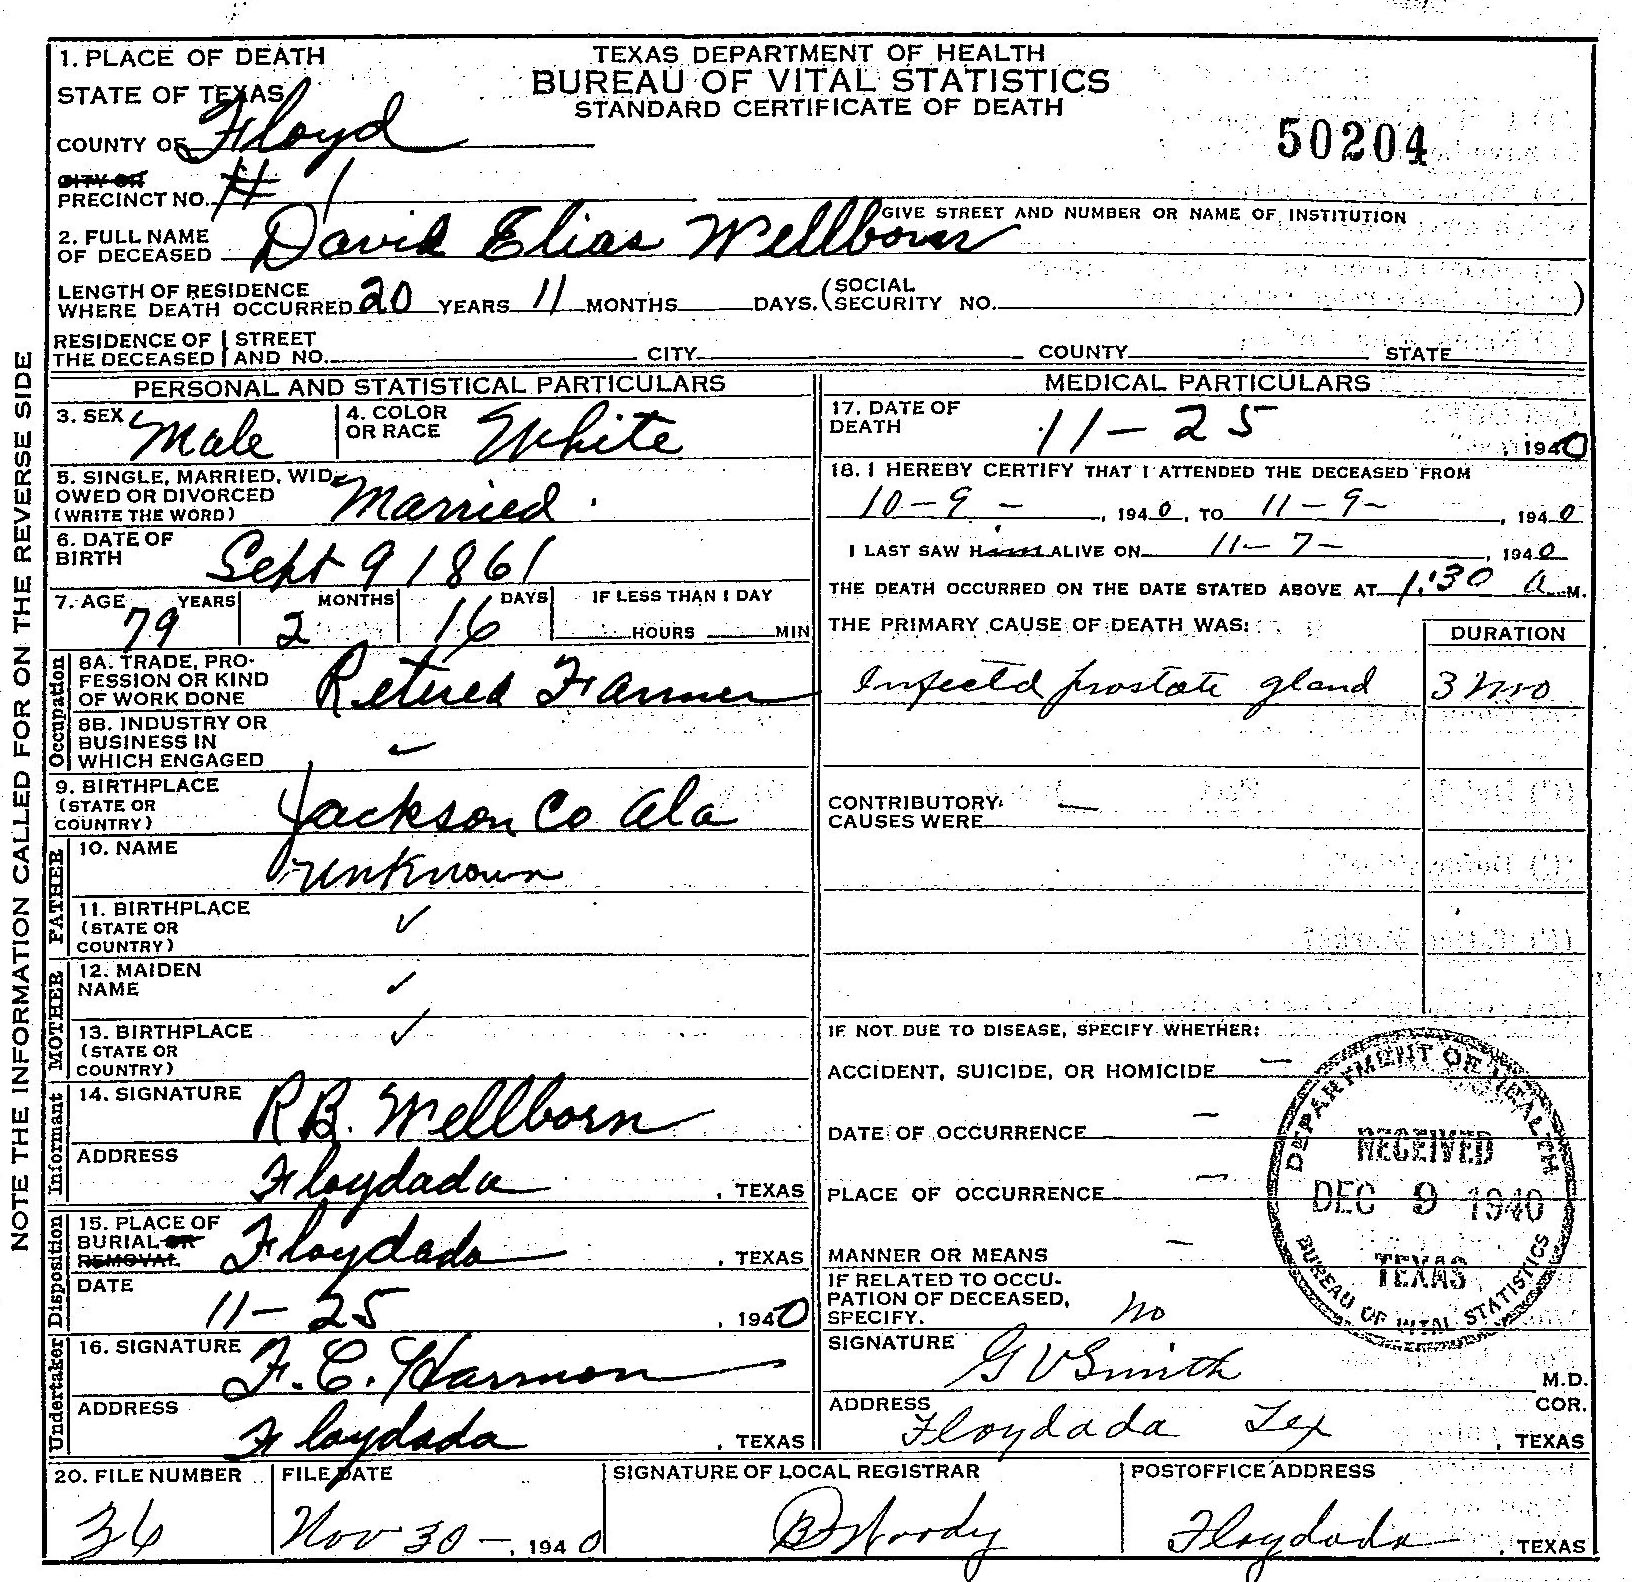 TEXAS DEPARTMENT OF HEALTH
BUREAU OF VITAL STATISTICS
STANDARD CERTIFICATE OF DEATH
50204
NOTE THE INFORMATION CALLED FOR ON THE REVERSE SIDE
1. PLACE OF DEATH
STATE OF TEXAS
COUNTY OF Floyd
CITY OR
PRECINCT NO. # 1
GIVE STREET AND NUMBER OR NAME OF INSTITUTION
2. FULL NAME
OF DECEASED David Elias Wellborn
LENGTH OF RESIDENCE
WHERE DEATH OCCURRED 20 YEARS 11 MONTHS DAYS. (SOCIAL SECURITY NO. )
RESIDENCE OF THE DECEASED STREET AND NO. CITY COUNTY STATE
PERSONAL AND STATISTICAL PARTICULARS
3. SEX Male 4. COLOR OR RACE White
5. SINGLE, MARRIED, WID-
OWED OR DIVORCED
(WRITE THE WORD) Married
6. DATE OF
BIRTH Sept 9 1861
7. AGE YEARS MONTHS DAYS IF LESS THAN 1 DAY
79 2 16 HOURS MIN
Occupation
8A. TRADE, PRO-
FESSION OR KIND
OF WORK DONE Retired Farmer
8B. INDUSTRY OR
BUSINESS IN
WHICH ENGAGED ✓
9. BIRTHPLACE
(STATE OR
COUNTRY) Jackson Co Ala
FATHER
10. NAME unknown
11. BIRTHPLACE ✓
(STATE OR
COUNTRY)
MOTHER
12. MAIDEN
NAME ✓
13. BIRTHPLACE ✓
(STATE OR
COUNTRY)
Informant
14. SIGNATURE R.B. Wellborn
ADDRESS
Floydada, TEXAS
Disposition
15. PLACE OF
BURIAL OR
REMOVAL Floydada, TEXAS
DATE
11-25, 1940
Undertaker
16. SIGNATURE F. C. Harmon
ADDRESS
Floydada, TEXAS
MEDICAL PARTICULARS
17. DATE OF
DEATH 11-25 1940
18. I HEREBY CERTIFY THAT I ATTENDED THE DECEASED FROM
10-9-, 1940, TO 11-9-, 1940
I LAST SAW Him ALIVE ON 11-7-, 1940
THE DEATH OCCURRED ON THE DATE STATED ABOVE AT 1:30 a M.
THE PRIMARY CAUSE OF DEATH WAS: DURATION
Infected prostate gland 3 mo
CONTRIBUTORY —
CAUSES WERE
IF NOT DUE TO DISEASE, SPECIFY WHETHER:
ACCIDENT, SUICIDE, OR HOMICIDE —
DATE OF OCCURRENCE —
PLACE OF OCCURRENCE —
MANNER OR MEANS —
IF RELATED TO OCCU-
PATION OF DECEASED,
SPECIFY. no
SIGNATURE G V Smith M.D.
COR.
ADDRESS
Floydada Tex, TEXAS
DEPARTMENT OF HEALTH
RECEIVED
DEC 9 1940
TEXAS
BUREAU OF VITAL STATISTICS
20. FILE NUMBER FILE DATE SIGNATURE OF LOCAL REGISTRAR POSTOFFICE ADDRESS
36 Nov 30-, 1940 Floydada, TEXAS